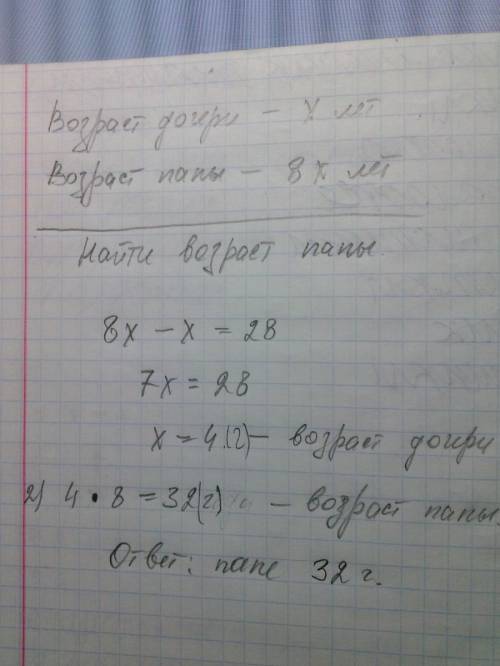 Возраст дочери – x лет
Возраст папы – 8x лет
Найти возраст папы.
8x – x = 28
7x = 28
x = 4 (г) – возраст дочери
2) 4 • 8 = 32 (г) – возраст папы.
Ответ: папе 32 г.